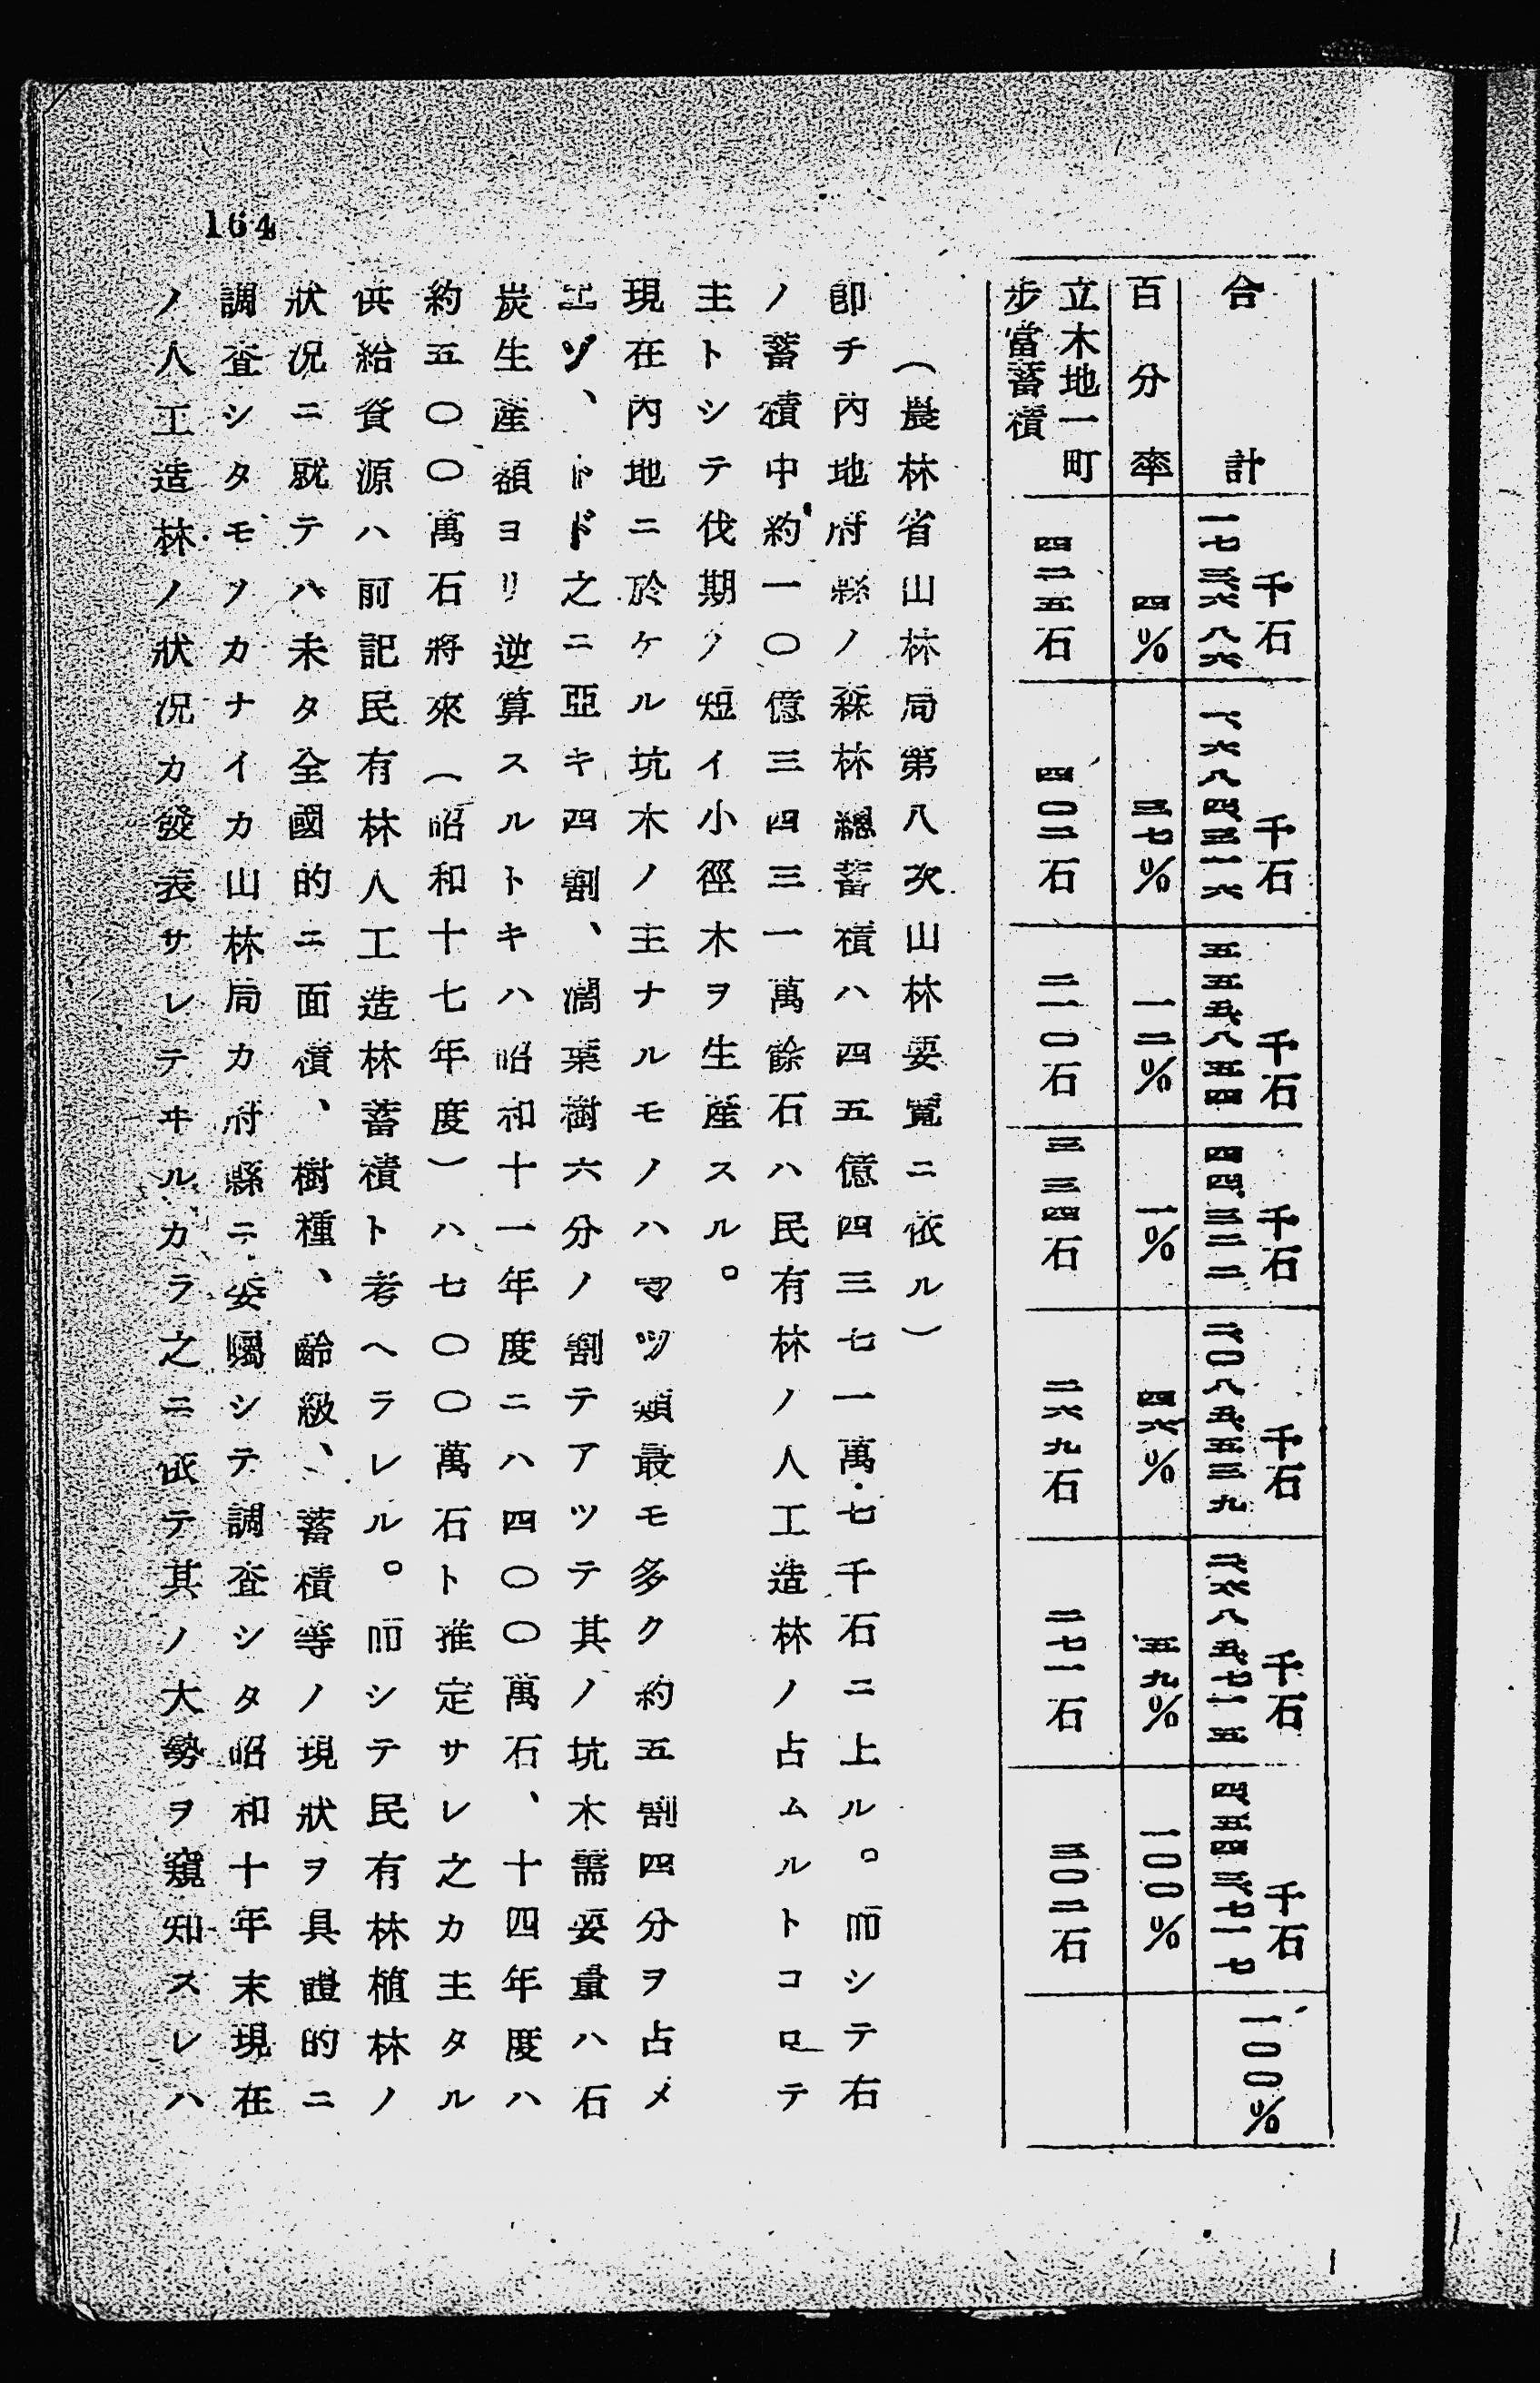 合計 一七三、六八六千石 一、六八四、三一六千石 五五五、八五四千石 四四、三二二千石 二、〇八五、五三九千石 二、六八五、七一五千石 四、五四三、七一七千石 一〇〇%
百分率 四% 三七% 一二% 一% 四六% 五九% 一〇〇%
立木地一町
歩當蓄積 四二五石 四〇二石 二一〇石 三三四石 二六九石 二七一石 三〇二石
（農林省山林局第八次山林要覽ニ依ル）
卽チ內地府縣ノ森林總蓄積ハ四五億四三七一萬七千石ニ上ル。而シテ右
ノ蓄積中約一〇億三四三一萬餘石ハ民有林ノ人工造林ノ占ムルトコロテ
主トシテ伐期ノ短イ小徑木ヲ生產スル。
現在內地ニ於ケル坑木ノ主ナルモノハマツ類最モ多ク約五割四分ヲ占メ
エゾ、トド之ニ亞キ四割、濶葉樹六分ノ割テアツテ其ノ坑木需要量ハ石
炭生產額ヨリ逆算スルトキハ昭和十一年度ニハ四〇〇萬石、十四年度ハ
約五〇〇萬石將來（昭和十七年度）ハ七〇〇萬石ト推定サレ之カ主タル
供給資源ハ前記民有林人工造林蓄積ト考ヘラレル。而シテ民有林植林ノ
狀況ニ就テハ未タ全國的ニ面積、樹種、齡級、蓄積等ノ現狀ヲ具體的ニ
調査シタモノカナイカ山林局カ府縣ニ委囑シテ調査シタ昭和十年末現在
ノ人工造林ノ狀況カ發表サレテヰルカラ之ニ依テ其ノ大勢ヲ窺知スレハ
164